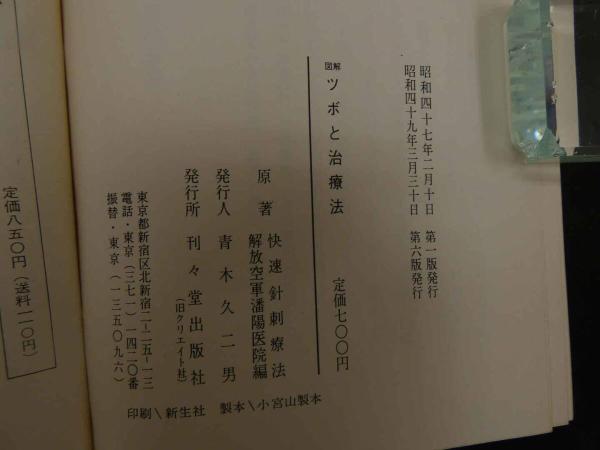 昭和四十七年二月十日 第一版発行
昭和四十九年三月三十日 第六版発行
図解 ツボと治療法
定価七〇〇円
原著 快速針刺療法
解放空軍潘陽医院編
発行人 青木久二男
発行所 刊々堂出版社
(旧クリエイト社)
東京都新宿区北新宿二–二五–一三
電話・東京(三七一)一四二〇番
振替・東京(一三五〇九六)
印刷\新生社 製本\小宮山製本
定価八五〇円(送料一一〇円)